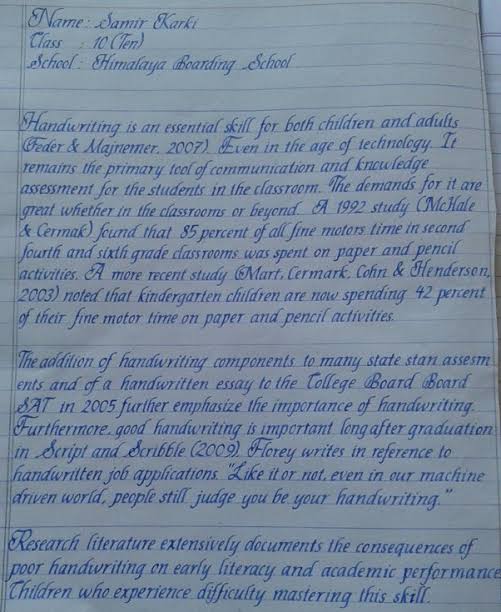 Name : Samir Karki
Class : 10 (Ten)
School : Himalaya Boarding School
Handwriting is an essential skill for both children and adults
(Feder & Majnemer, 2007). Even in the age of technology. It
remains the primary tool of communication and knowledge
assessment for the students in the classroom. The demands for it are
great whether in the classrooms or beyond. A 1992 study (McHale
& Cermak) found that 85 percent of all fine motors time in second
fourth and sixth grade classrooms was spent on paper and pencil
activities. A more recent study (Mart, Cermark, Cohn & Henderson,
2003) noted that kindergarten children are now spending 42 percent
of their fine motor time on paper and pencil activities.
The addition of handwriting components to many state stan assesm
ents and of a handwritten essay to the College Board Board
SAT in 2005 further emphasize the importance of handwriting.
Furthermore, good handwriting is important long after graduation
in Script and Scribble (2009). Florey writes in reference to
handwritten job applications. "Like it or not, even in our machine
driven world, people still judge you be your handwriting."
Research literature extensively documents the consequences of
poor handwriting on early literacy and academic performance
Children who experience difficulty mastering this skill.